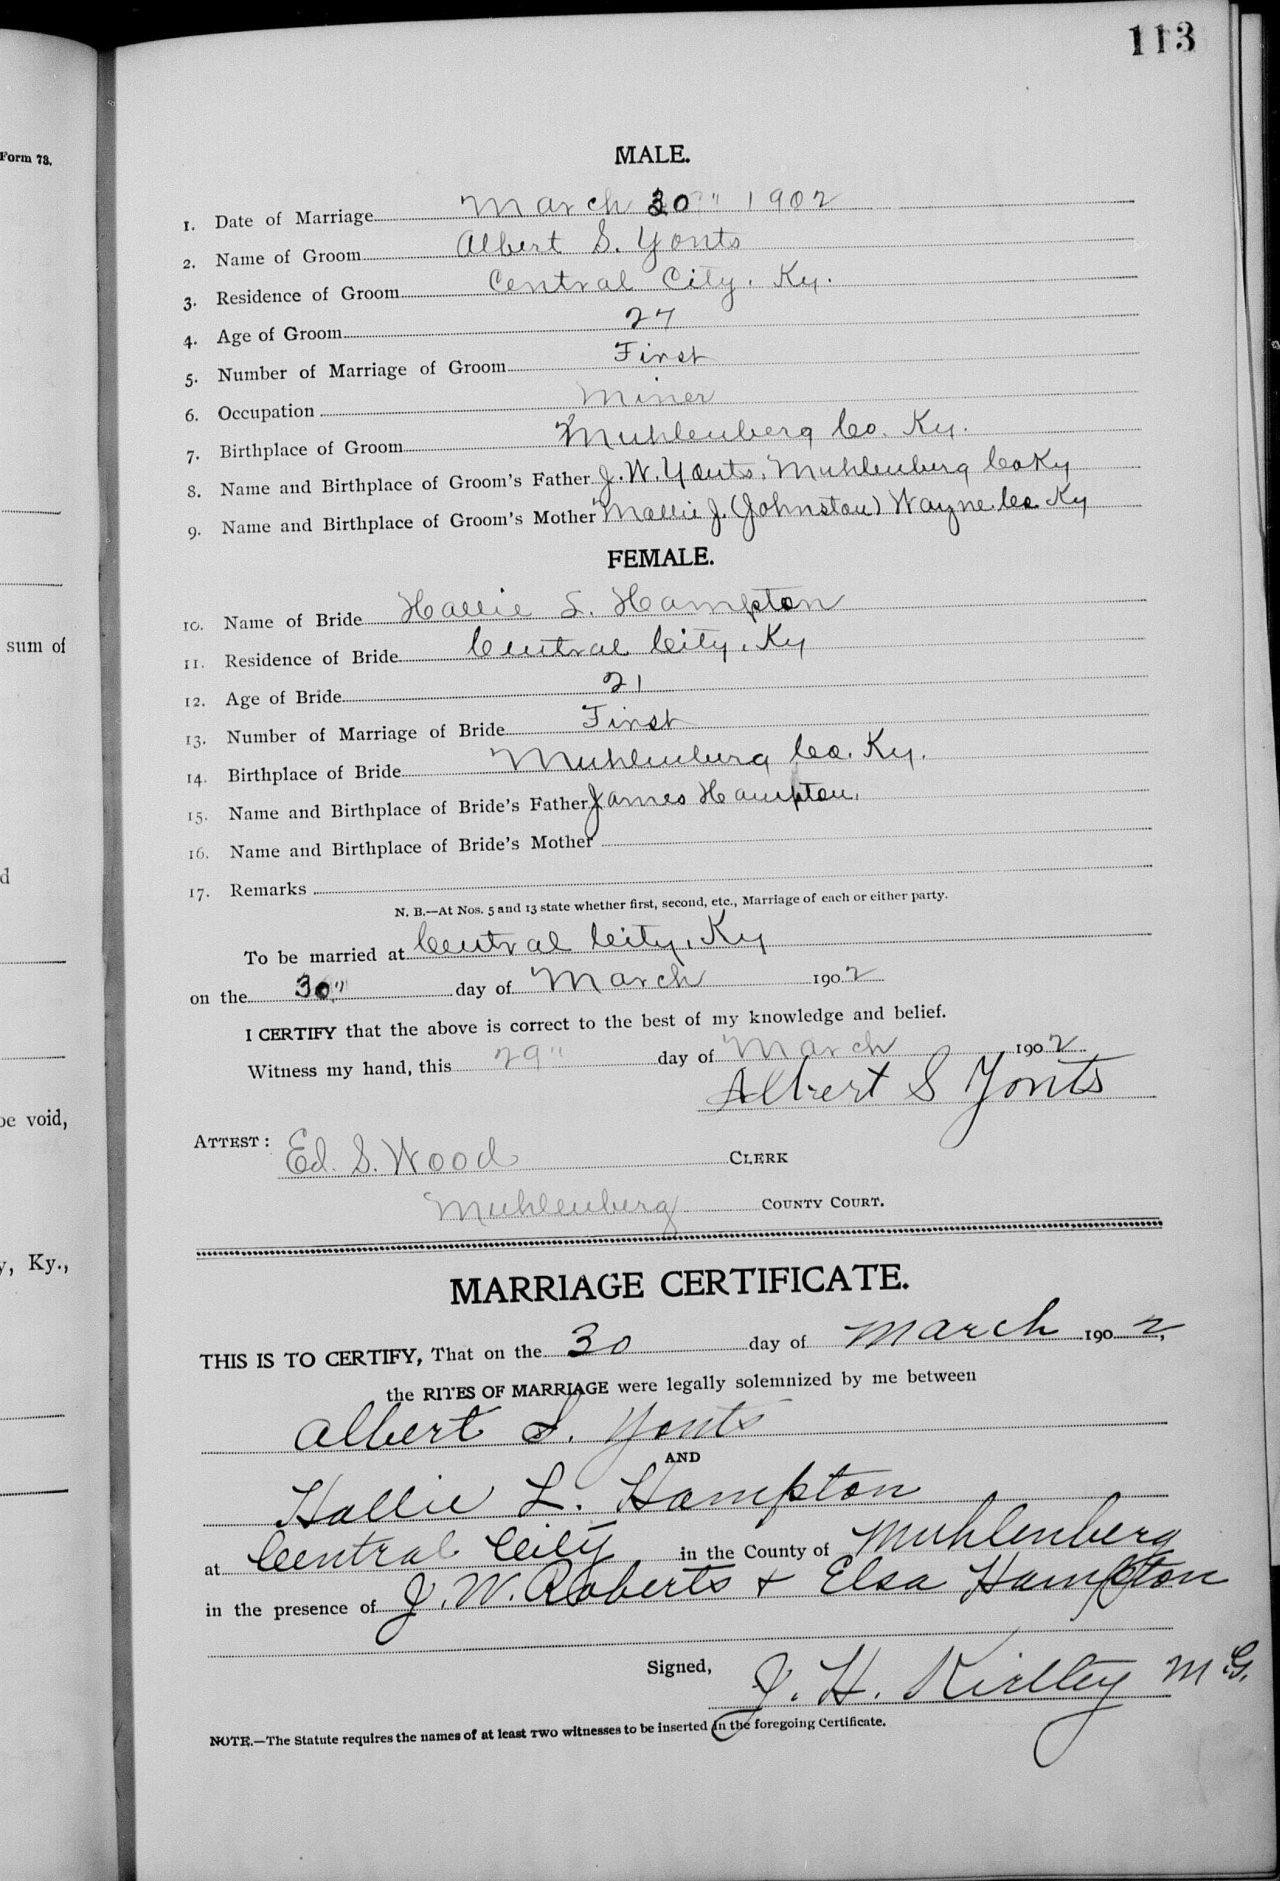 113
Form 73.
MALE.
1. Date of Marriage March 30" 1902
2. Name of Groom Albert S. Yonts
3. Residence of Groom Central City. Ky.
4. Age of Groom 27
5. Number of Marriage of Groom First
6. Occupation Miner
7. Birthplace of Groom Muhlenberg Co. Ky.
8. Name and Birthplace of Groom's Father J. W. Yonts, Muhlenberg Co Ky
9. Name and Birthplace of Groom's Mother Mollie J. (Johnston) Wayne Co Ky
FEMALE.
10. Name of Bride Hallie L. Hampton
11. Residence of Bride Central City, Ky
sum of
12. Age of Bride 21
13. Number of Marriage of Bride First
14. Birthplace of Bride Muhlenberg Co. Ky.
15. Name and Birthplace of Bride's Father James Hampton.
16. Name and Birthplace of Bride's Mother
d
17. Remarks
N. B.—At Nos. 5 and 13 state whether first, second, etc., Marriage of each or either party.
To be married at Central City, Ky
on the 30" day of March 1902
I CERTIFY that the above is correct to the best of my knowledge and belief.
Witness my hand, this 29" day of March 1902
Albert S Yonts
be void,
ATTEST: Ed. S. Wood CLERK
Muhlenberg COUNTY COURT.
y, Ky.,
MARRIAGE CERTIFICATE.
THIS IS TO CERTIFY, That on the 30 day of March 1902,
the RITES OF MARRIAGE were legally solemnized by me between
Albert S. Yonts
AND
Hallie L. Hampton
at Central City in the County of Muhlenberg
in the presence of J. W. Roberts + Elsa Hampton
Signed, J. H. Kirtley M.G.
NOTE.—The Statute requires the names of at least TWO witnesses to be inserted in the foregoing Certificate.